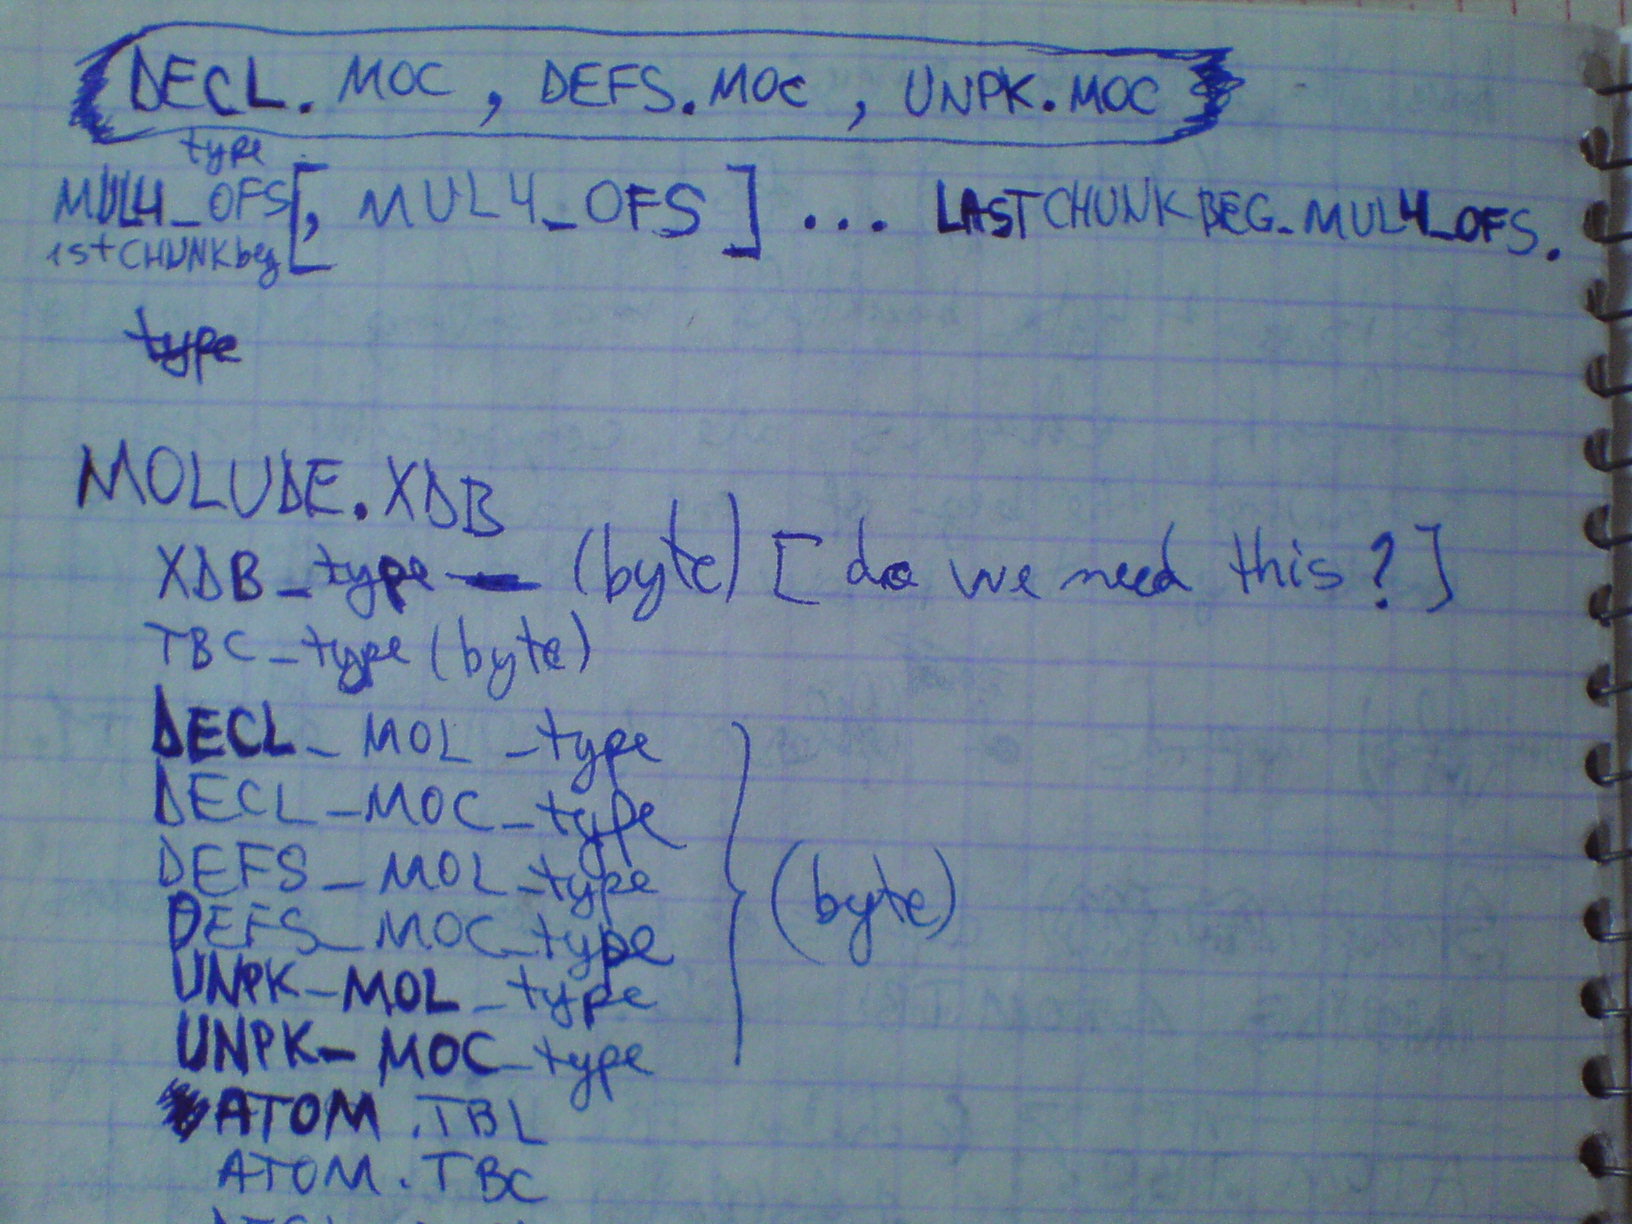 DECL. MOC , DEFS.MOC , UNPK.MOC
type
MUL4_OFS[, MUL4_OFS] ... LASTCHUNKBEG_MUL4_OFS.
1stCHUNKbeg
type
MOLUDE.XDB
XDB_type - (byte) [do we need this?]
TBC_type (byte)
DECL_MOL_type
DECL_MOC_type
DEFS_MOL_type
DEFS_MOC_type
(byte)
UNPK_MOL_type
UNPK_MOC_type
ATOM.TBL
ATOM.TBC